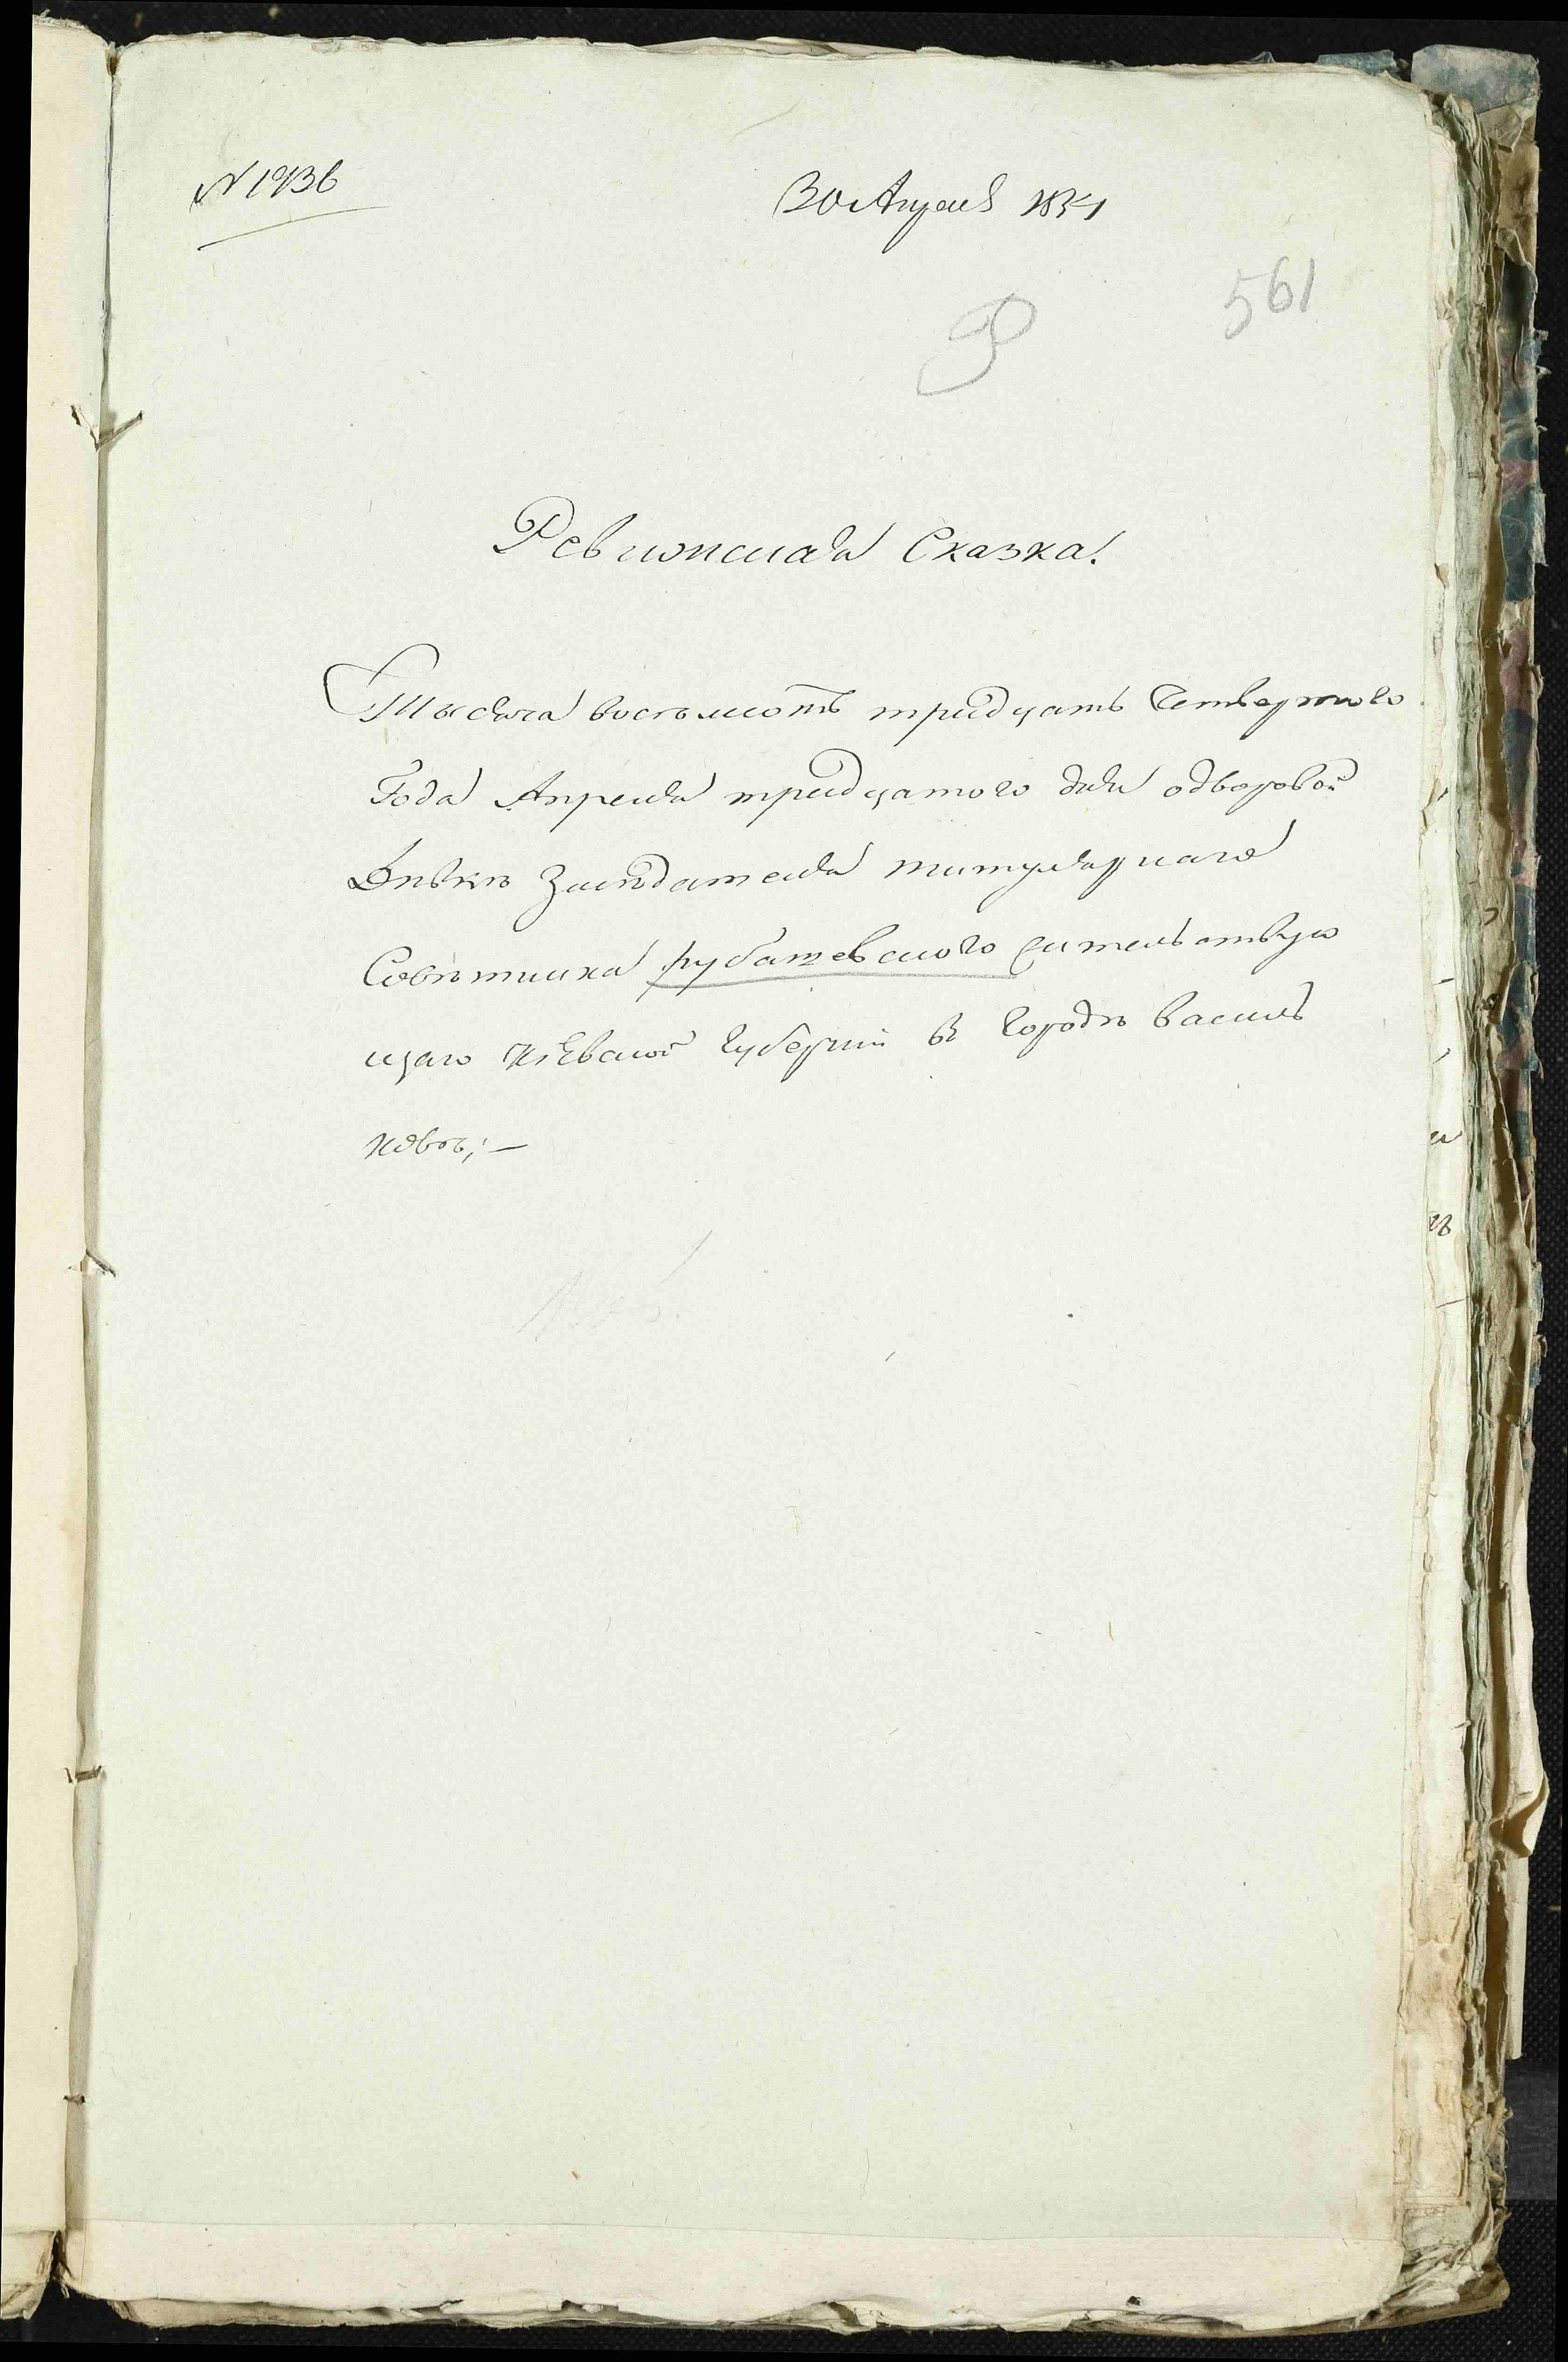 № 1936
30 Апреля 1834
561
Ревизская Сказка.
Тысяча восемьсотъ тридцать Четвертого
Года Апреля тридцатого дня о дворовой
Девкѣ Заседателя титулярнаго
Совѣтника рубашевского жительствую
щаго Кіевской Губерніи въ Городѣ Василь
ковѣ; —